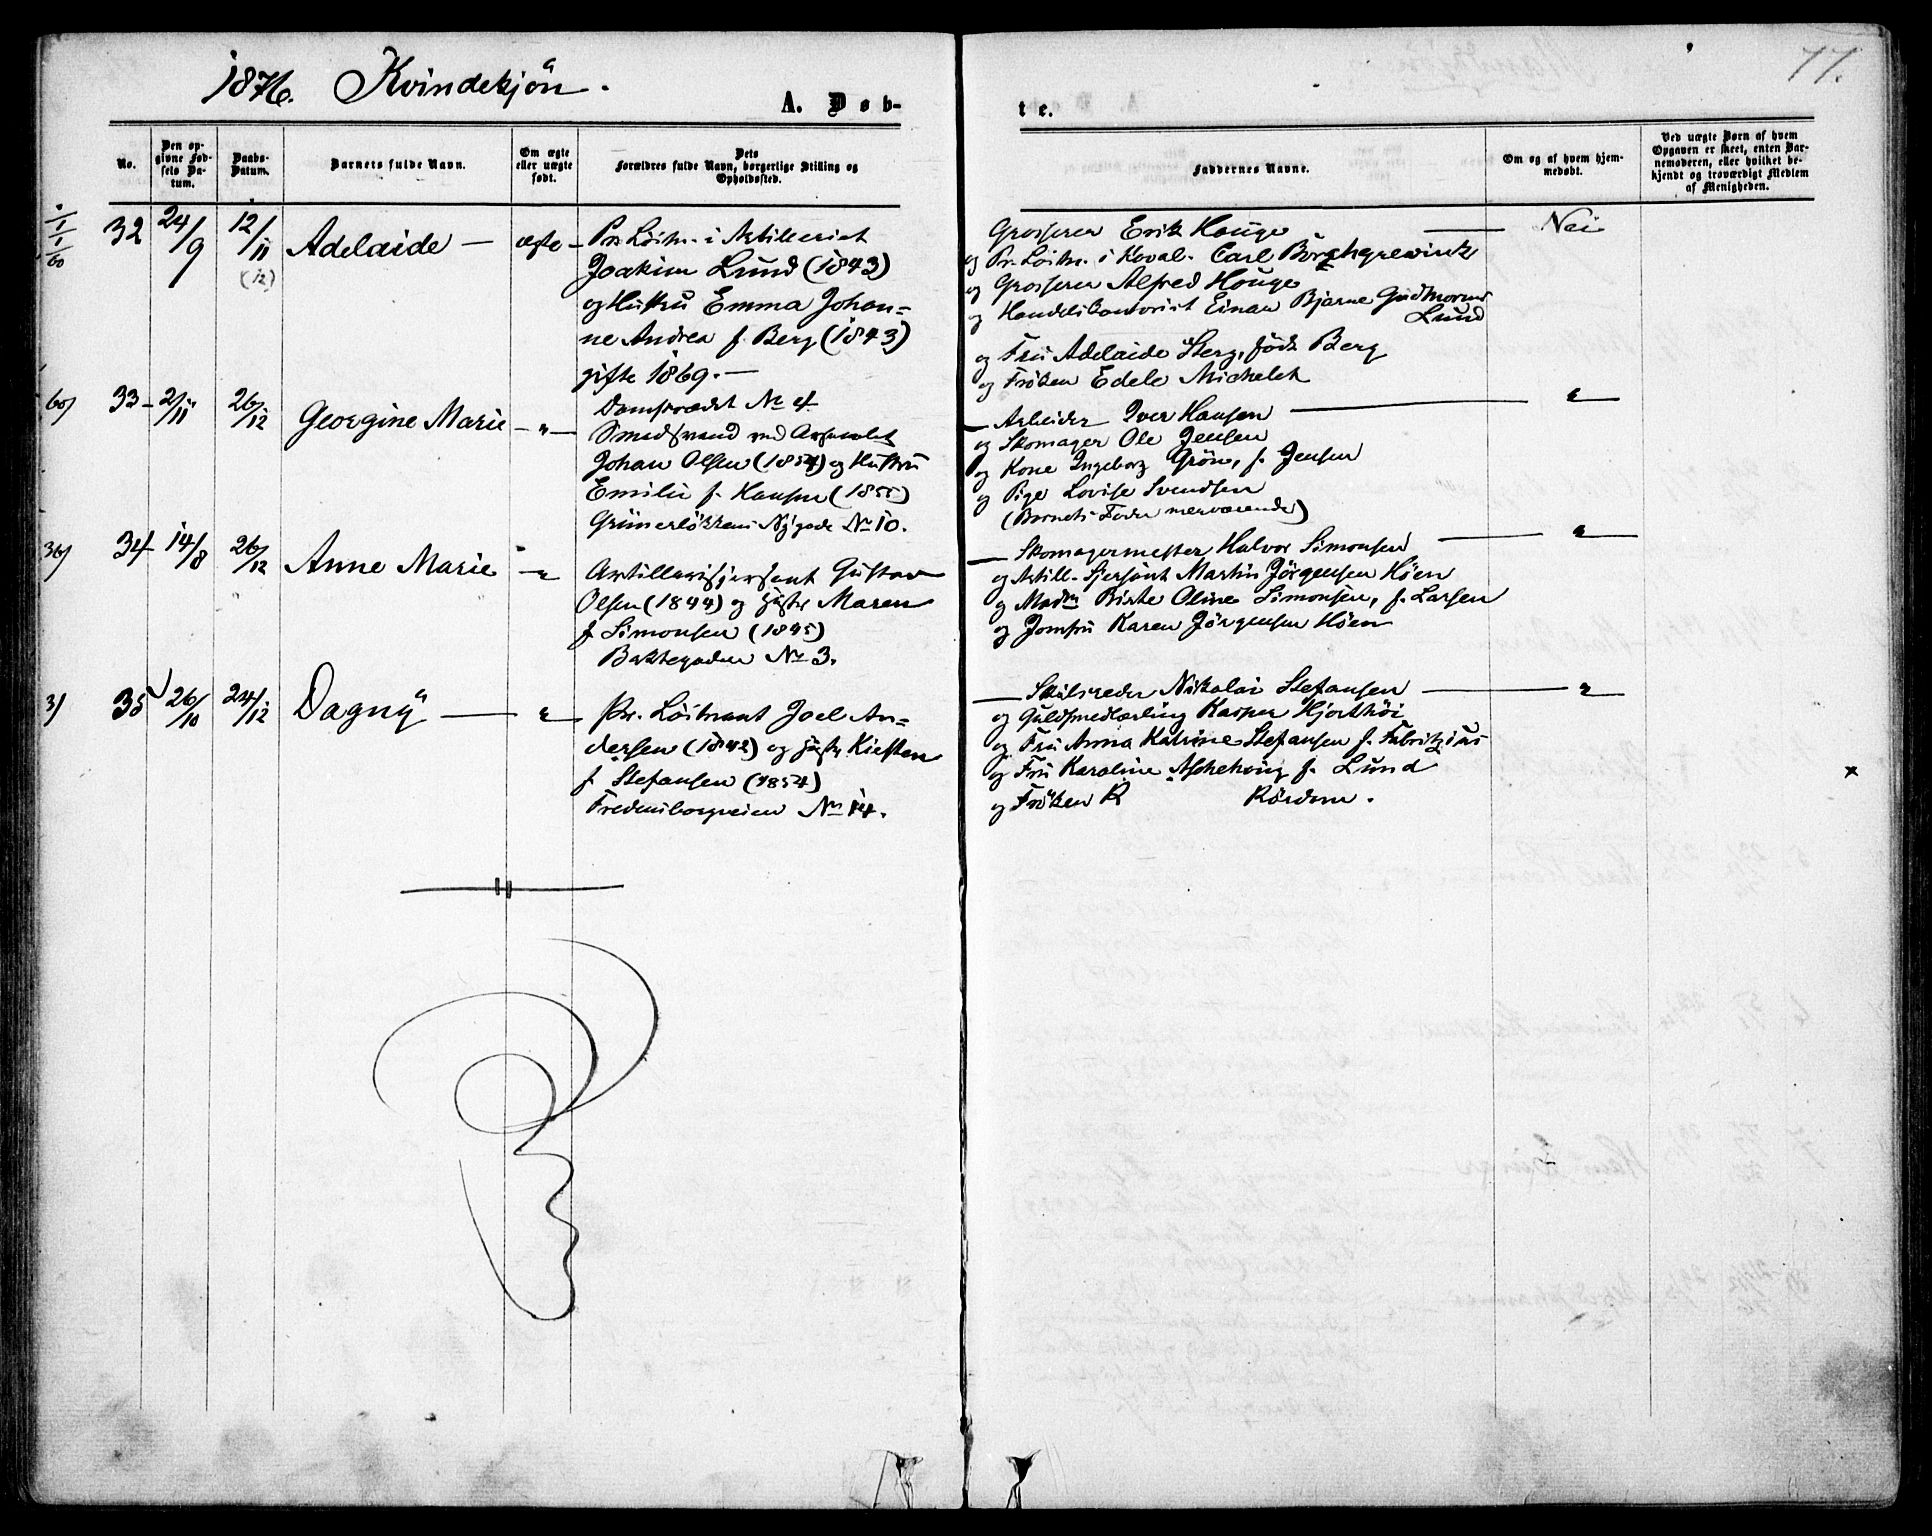 1876. Kvindekjön.
A. Døb-
te.
77.
No.
Den op-
givne Fød-
sels Da-
tum.
Daabs-
Datum.
Barnets fulde Navn.
Om ægte
eller uægte
født.
Dets
Forældres fulde Navn, borgerlige Stilling og
Opholdssted.
Faddernes Navne.
Om og af hvem hjem-
medøbt.
Ved uægte Børn af hvem
Opgaven er skeet, enten Bar-
nemoderen, eller hvilket be-
kjendt og troværdigt Medlem
af Menigheden.
32 24/9 12/11 (12) Adelaide — ægte —
Pr. Löitn. i Artilleriet
Joakim Lund (1843)
og Hustru Emma Johan=
ne Andrea f. Berg (1843)
gifte 1869. —
Grosserer Erik Hauge — Nei
og Pr. Löitn. i Kaval. Carl Borchgrevink
og Grosserer Alfred Hauge
og Handelskontorist Einar Bjarne Gudmorund
Lund
og Fru Adelaide Sterg, född Berg
og Fröken Edele Michelet
60) 33 2/11 26/12 Georgine Marie — " —
Smedsvend ved Arsenalet
Johan Olsen (1854) og Hustru
Emilie f. Hansen (1855)
Grünerløkkens Nygade No 10.
— Arbeider Iver Hansen — "
og Skomager Ole Jensen
og Kone Ingeborg Grön, f. Jensen
og Pige Lovise Svendsen
(Barnets Fader nærværende)
36) 34 14/8 26/12 Anne Marie — "
Artillerisjersent Gustav
Olsen (1844) og Hustr Maren
f. Simonsen (1845)
Bakkegaden No 3.
— Skomagermester Halvor Simonsen — "
og Artill. Sjersönt Martin Jörgensen Höen
og Madm Birte Oline Simonsen, f. Larsen
og Jomfru Karen Jörgensen Höen
3) 35 26/10 24/12 Dagny — "
Pr. Löitnant Joel An=
dersen (1842) og Hustr Kirsten
f. Stefansen (1854)
Fredensborgveien No 14.
— Skibsreder Nikolai Stefansen — "
og Guldsmedlærling Kasper Hjorthöi
og Fru Anna Katrine Stefansen f. Fabritzius
og Fru Karoline Aschehoug f. Lund
og Fröken R Rördam.
x